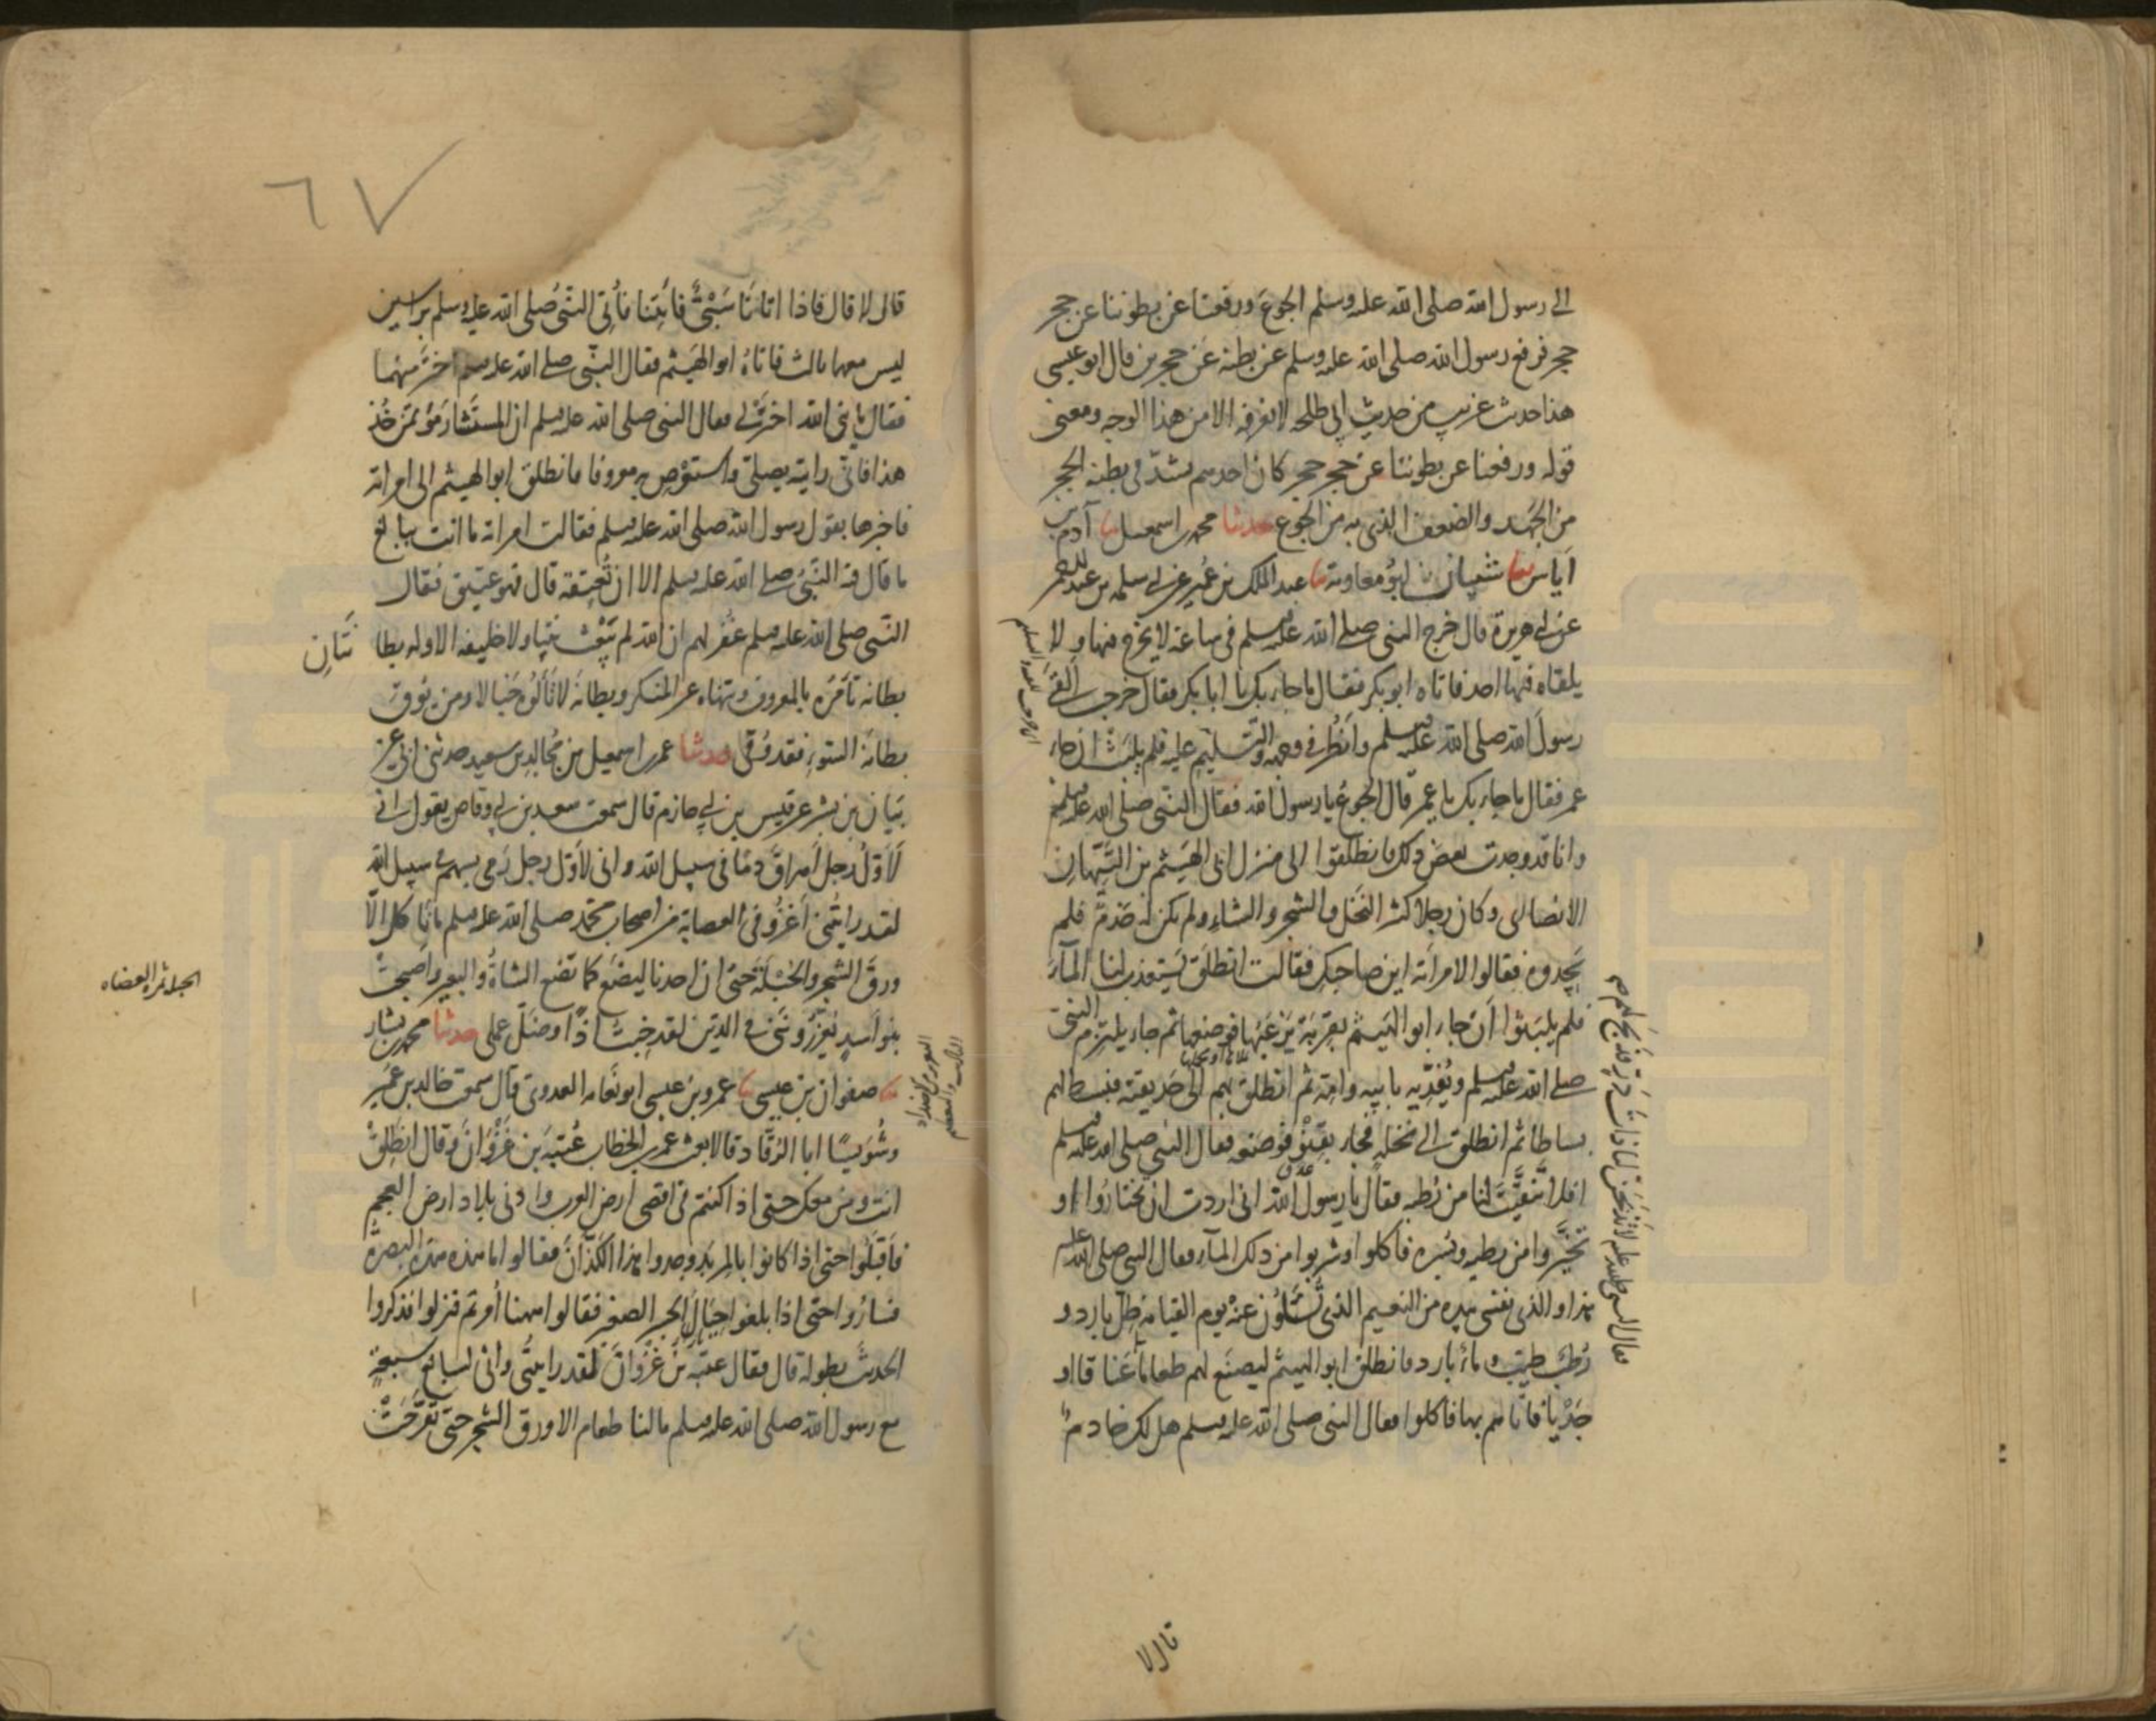 الى رسول الله صلى الله عليه وسلم الجوع ورفعنا عن بطوننا عن حجر
حجر فرفع رسول الله صلى الله عليه وسلم عن بطنه عن حجرين قال ابو عيسى
هذا حديث غريب من حديث ابي طلحه لا نعرفه الا من هذا الوجه ومعنى
قوله ورفعنا عن بطوننا عن حجر حجر كان احدهم يشدّ في بطنه الحجر
من الجهد والضعف الذي به من الجوع حدثنا محمد بن اسمعيل ثنا آدم بن
اياس ثنا شيبان ابو معاوية ثنا عبد الملك بن عمير عن ابي سلمه بن عبد الرحمن
عن ابي هريرة قال خرج النبي صلى الله عليه وسلم في ساعة لا يخرج فيها ولا
يلقاه فيها احد فاتاه ابو بكر فقال ما جاء بك يا ابا بكر فقال خرجت القى
رسول الله صلى الله عليه وسلم وانظر في وجهه والتسليم عليه فلم يلبث ان جاء
عمر فقال ما جاء بك يا عمر قال الجوع يا رسول الله فقال النبي صلى الله عليه وسلم
وانا قد وجدت بعض ذلك فانطلقوا الى منزل ابى الهيثم بن التيهان
الانصارى وكان رجلا كثير النخل والشجر والشاء ولم يكن له خدم فلم
يجدوه فقالوا لامراته اين صاحبك فقالت انطلق يستعذب لنا الماء
فلم يلبثوا ان جاء ابو الهيثم بقربة يزعبها فوضعها ثم جاء يلتزم النبي
صلى الله عليه وسلم ويفديه بابيه وامه ثم انطلق بهم الى حديقته فبسط لهم
بساطا ثم انطلق الى نخلة فجاء بقنو فوضعه فقال النبي صلى الله عليه وسلم
افلا تنقيت لنا من رطبه فقال يا رسول الله انى اردت ان تختاروا او
تخيروا من رطبه وبسره فاكلوا وشربوا من ذلك الماء فقال النبي صلى الله عليه
هذا والذى نفسى بيده من النعيم الذى تسئلون عنه يوم القيامة ظل بارد و
رطب طيب وماء بارد فانطلق ابو الهيثم ليصنع لهم طعاما عناقا او
جديا فاتاهم بها فاكلوا فقال النبى صلى الله عليه وسلم هل لك خادم
فقال النبي صلى الله عليه وسلم لا تذبحن لنا ذات در فذبح لهم
قال لا
٦٧
قال لا قال فاذا اتانا سبي فائتنا فأتي النبي صلى الله عليه وسلم براسين
ليس معهما ثالث فاتاه ابو الهيثم فقال النبي صلى الله عليه وسلم اختر منهما
فقال يا نبي الله اختر لي فقال النبى صلى الله عليه وسلم ان المستشار مؤتمن خذ
هذا فاني رايته يصلي واستوص به معروفا فانطلق ابو الهيثم الى امراته
فاخبرها بقول رسول الله صلى الله عليه وسلم فقالت امراته ما انت ببالغ
ما قال فيه النبي صلى الله عليه وسلم الا ان تعتقه قال فهو عتيق فقال
النبي صلى الله عليه وسلم ان الله لم يبعث نبيا ولا خليفه الا وله بطا نتان
بطانة تامره بالمعروف وتنهاه عن المنكر وبطانة لا تألوه خبالا ومن يوق
بطانة السوء فقد وقي حدثنا عمر بن اسمعيل بن مجالد بن سعيد حدثنى ابى عن
بيان بن بشر عن قيس بن ابي حازم قال سمعت سعد بن ابي وقاص يقول انى
لاول رجل اهراق دما فى سبيل الله وانى لاول رجل رمى بسهم في سبيل الله
لقد رايتنى اغزو فى العصابة من اصحاب محمد صلى الله عليه وسلم ما نأكل الا
ورق الشجر والحبلة حتى ان احدنا ليضع كما تضع الشاة والبعير واصبحت
بنو اسد يعزرونني في الدين لقد خبت اذا وضل عملى حدثنا محمد بن بشار
ثنا صفوان بن عيسى ثنا عمرو بن عيسى ابو نعامه العدوى قال سمعت خالد بن عمير
وشويسا ابا الرقاد قالا بعث عمر بن الخطاب عتبة بن غزوان وقال انطلق
انت ومن معك حتى اذا كنتم فى اقصى ارض العرب وادنى بلاد ارض العجم
فاقبلوا حتى اذا كانوا بالمربد وجدوا هذا الكذان فقالوا ما هذه هذه البصرة
فساروا حتى اذا بلغوا حيال الجسر الصغير فقالوا ههنا امرتم فنزلوا فذكروا
الحديث بطوله قال فقال عتبة بن غزوان لقد رايتنى وانى لسابع سبعة
مع رسول الله صلى الله عليه وسلم مالنا طعام الا ورق الشجر حتى تقرحت
الحبلة ثمر العضاه